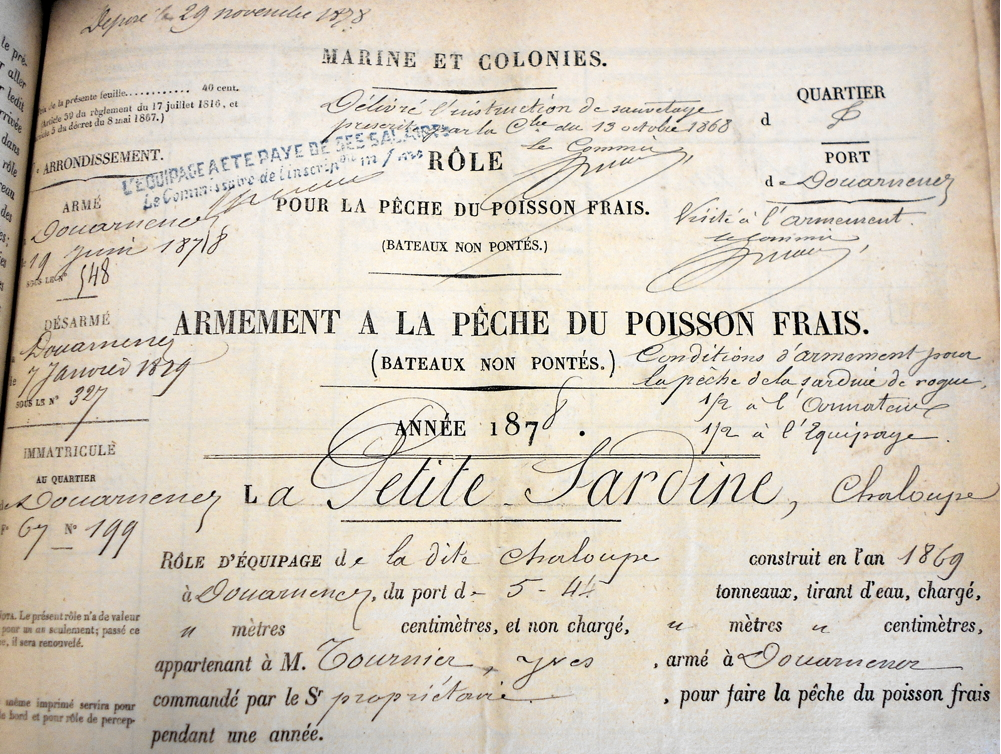 Déposé le 29 novembre 1878
MARINE ET COLONIES.
de la présente feuille............ 40 cent.
(Article 30 du règlement du 17 juillet 1816, et
5 du décret du 8 mai 1867.)
Délivré l'instruction de sauvetage
prescrite par la Cre du 13 octobre 1868
le Commis
QUARTIER
d D
PORT
de Douarnenez
ARRONDISSEMENT.
L'ÉQUIPAGE A ÉTÉ PAYÉ DE SES SALAIRES
Le Commissaire de l'inscripon m/me
RÔLE
POUR LA PÊCHE DU POISSON FRAIS.
(BATEAUX NON PONTÉS.)
Visité à l'armement.
le Commis
ARMÉ
Douarnenez
19 Juin 1878
SOUS LE N° 548
ARMEMENT A LA PÊCHE DU POISSON FRAIS.
(BATEAUX NON PONTÉS.)
Conditions d'armement pour
la pêche de la sardine de rogue,
1/2 à l'Armateur
1/2 à l'Equipage.
DÉSARMÉ
Douarnenez
7 Janvier 1879
SOUS LE N° 327
ANNÉE 1878.
IMMATRICULÉ
AU QUARTIER
de Douarnenez
F° 67 N° 199
La Petite Sardine, Chaloupe
RÔLE D'ÉQUIPAGE de la dite chaloupe construit en l'an 1869
à Douarnenez, du port de 5-44 tonneaux, tirant d'eau, chargé,
" mètres centimètres, et non chargé, " mètres " centimètres,
appartenant à M. Tournier, Yves, armé à Douarnenez
commandé par le Sr propriétaire, pour faire la pêche du poisson frais
pendant une année.
NOTA. Le présent rôle n'a de valeur
pour un an seulement; passé ce
, il sera renouvelé.
même imprimé servira pour
de bord et pour rôle de percep-